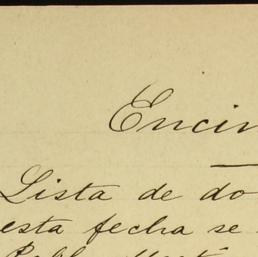 Encin
Lista de do
esta fecha se